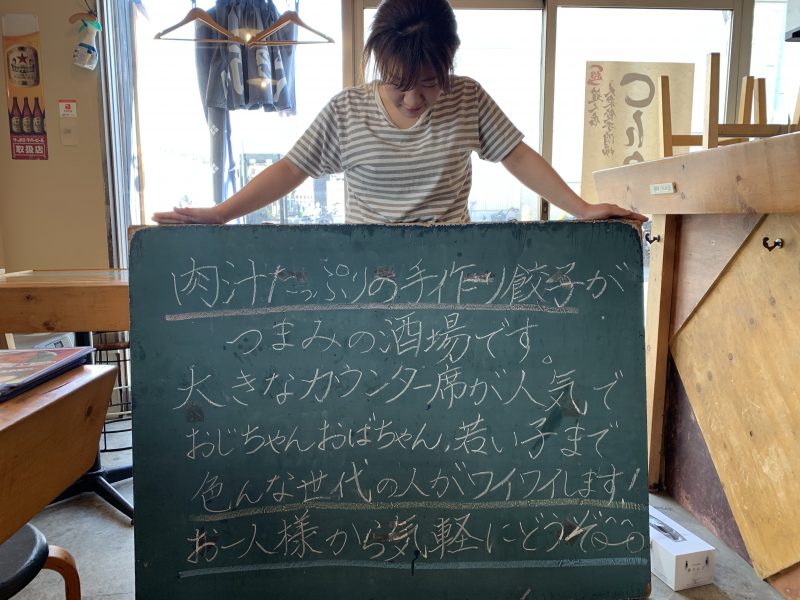 取扱店
肉汁たっぷりの手作り餃子が
つまみの酒場です。
大きなカウンター席が人気で
おじちゃんおばちゃん,若い子まで
色んな世代の人がワイワイします!
お一人様から気軽にどうぞ